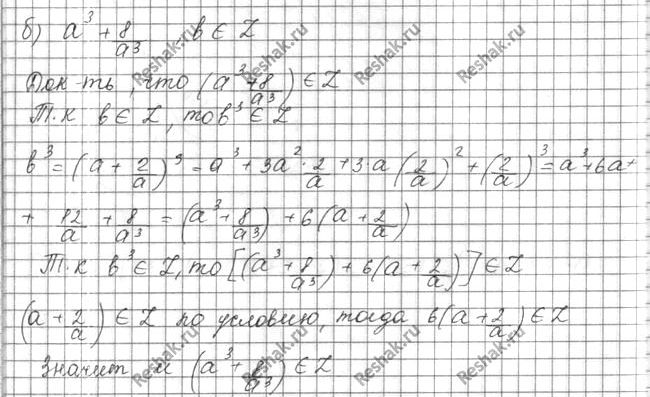 б) a³ + 8/a³ в ∈ Z
Док-ть, что (a³ + 8/a³) ∈ Z
Т.к в ∈ Z, то в³ ∈ Z
в³ = (a + 2/a)³ = a³ + 3a² · 2/a + 3·a (2/a)² + (2/a)³ = a³ + 6a +
+ 12/a + 8/a³ = (a³ + 8/a³) + 6(a + 2/a)
Т.к в³ ∈ Z, то [(a³ + 8/a³) + 6(a + 2/a)] ∈ Z
(a + 2/a) ∈ Z по условию, тогда 6(a + 2/a) ∈ Z
Значит и (a³ + 8/a³) ∈ Z
Reshak.ru
Reshak.ru
Reshak.ru
Reshak.ru
Reshak.ru
Reshak.ru
Reshak.ru
Reshak.ru